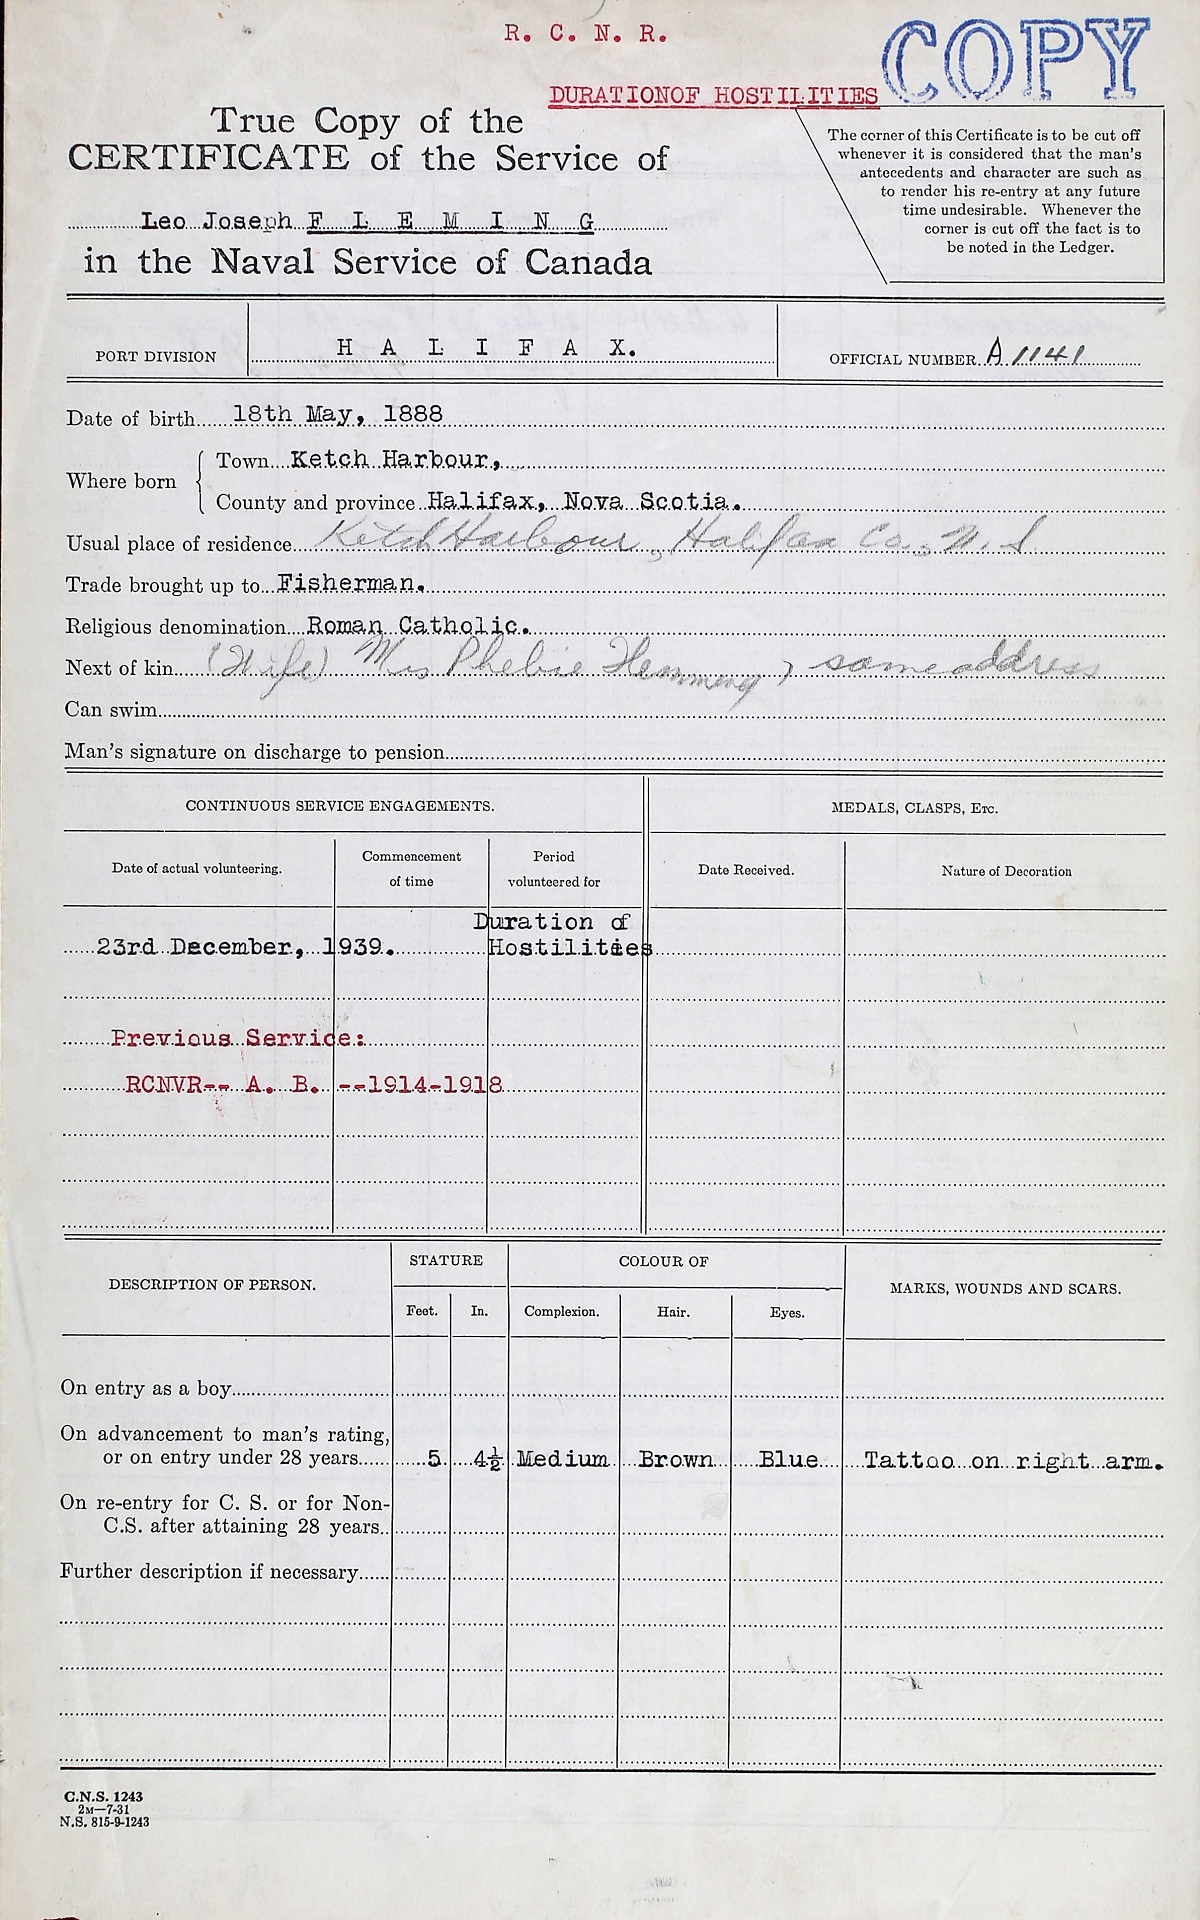 R. C. N. R.
COPY
DURATIONOF HOSTILITIES
True Copy of the
CERTIFICATE of the Service of
Leo Joseph F L E M I N G
in the Naval Service of Canada
The corner of this Certificate is to be cut off
whenever it is considered that the man's
antecedents and character are such as
to render his re-entry at any future
time undesirable. Whenever the
corner is cut off the fact is to
be noted in the Ledger.
PORT DIVISION H A L I F A X. OFFICIAL NUMBER A 1141
Date of birth 18th May, 1888
Where born
Town Ketch Harbour,
County and province Halifax, Nova Scotia.
Usual place of residence Ketch Harbour, Halifax Co., N. S.
Trade brought up to Fisherman.
Religious denomination Roman Catholic.
Next of kin (Wife) Mrs Phebie Flemming, same address
Can swim
Man's signature on discharge to pension
CONTINUOUS SERVICE ENGAGEMENTS. MEDALS, CLASPS, ETC.
Date of actual volunteering. Commencement of time Period volunteered for Date Received. Nature of Decoration
Duration of
23rd December, 1939. Hostilities
Previous Service:
RCNVR-- A. B. --1914-1918
DESCRIPTION OF PERSON. STATURE COLOUR OF MARKS, WOUNDS AND SCARS.
Feet. In. Complexion. Hair. Eyes.
On entry as a boy
On advancement to man's rating,
or on entry under 28 years 5 4½ Medium Brown Blue Tattoo on right arm.
On re-entry for C. S. or for Non-
C.S. after attaining 28 years
Further description if necessary
C.N.S. 1243
2M—7-31
N.S. 815-9-1243